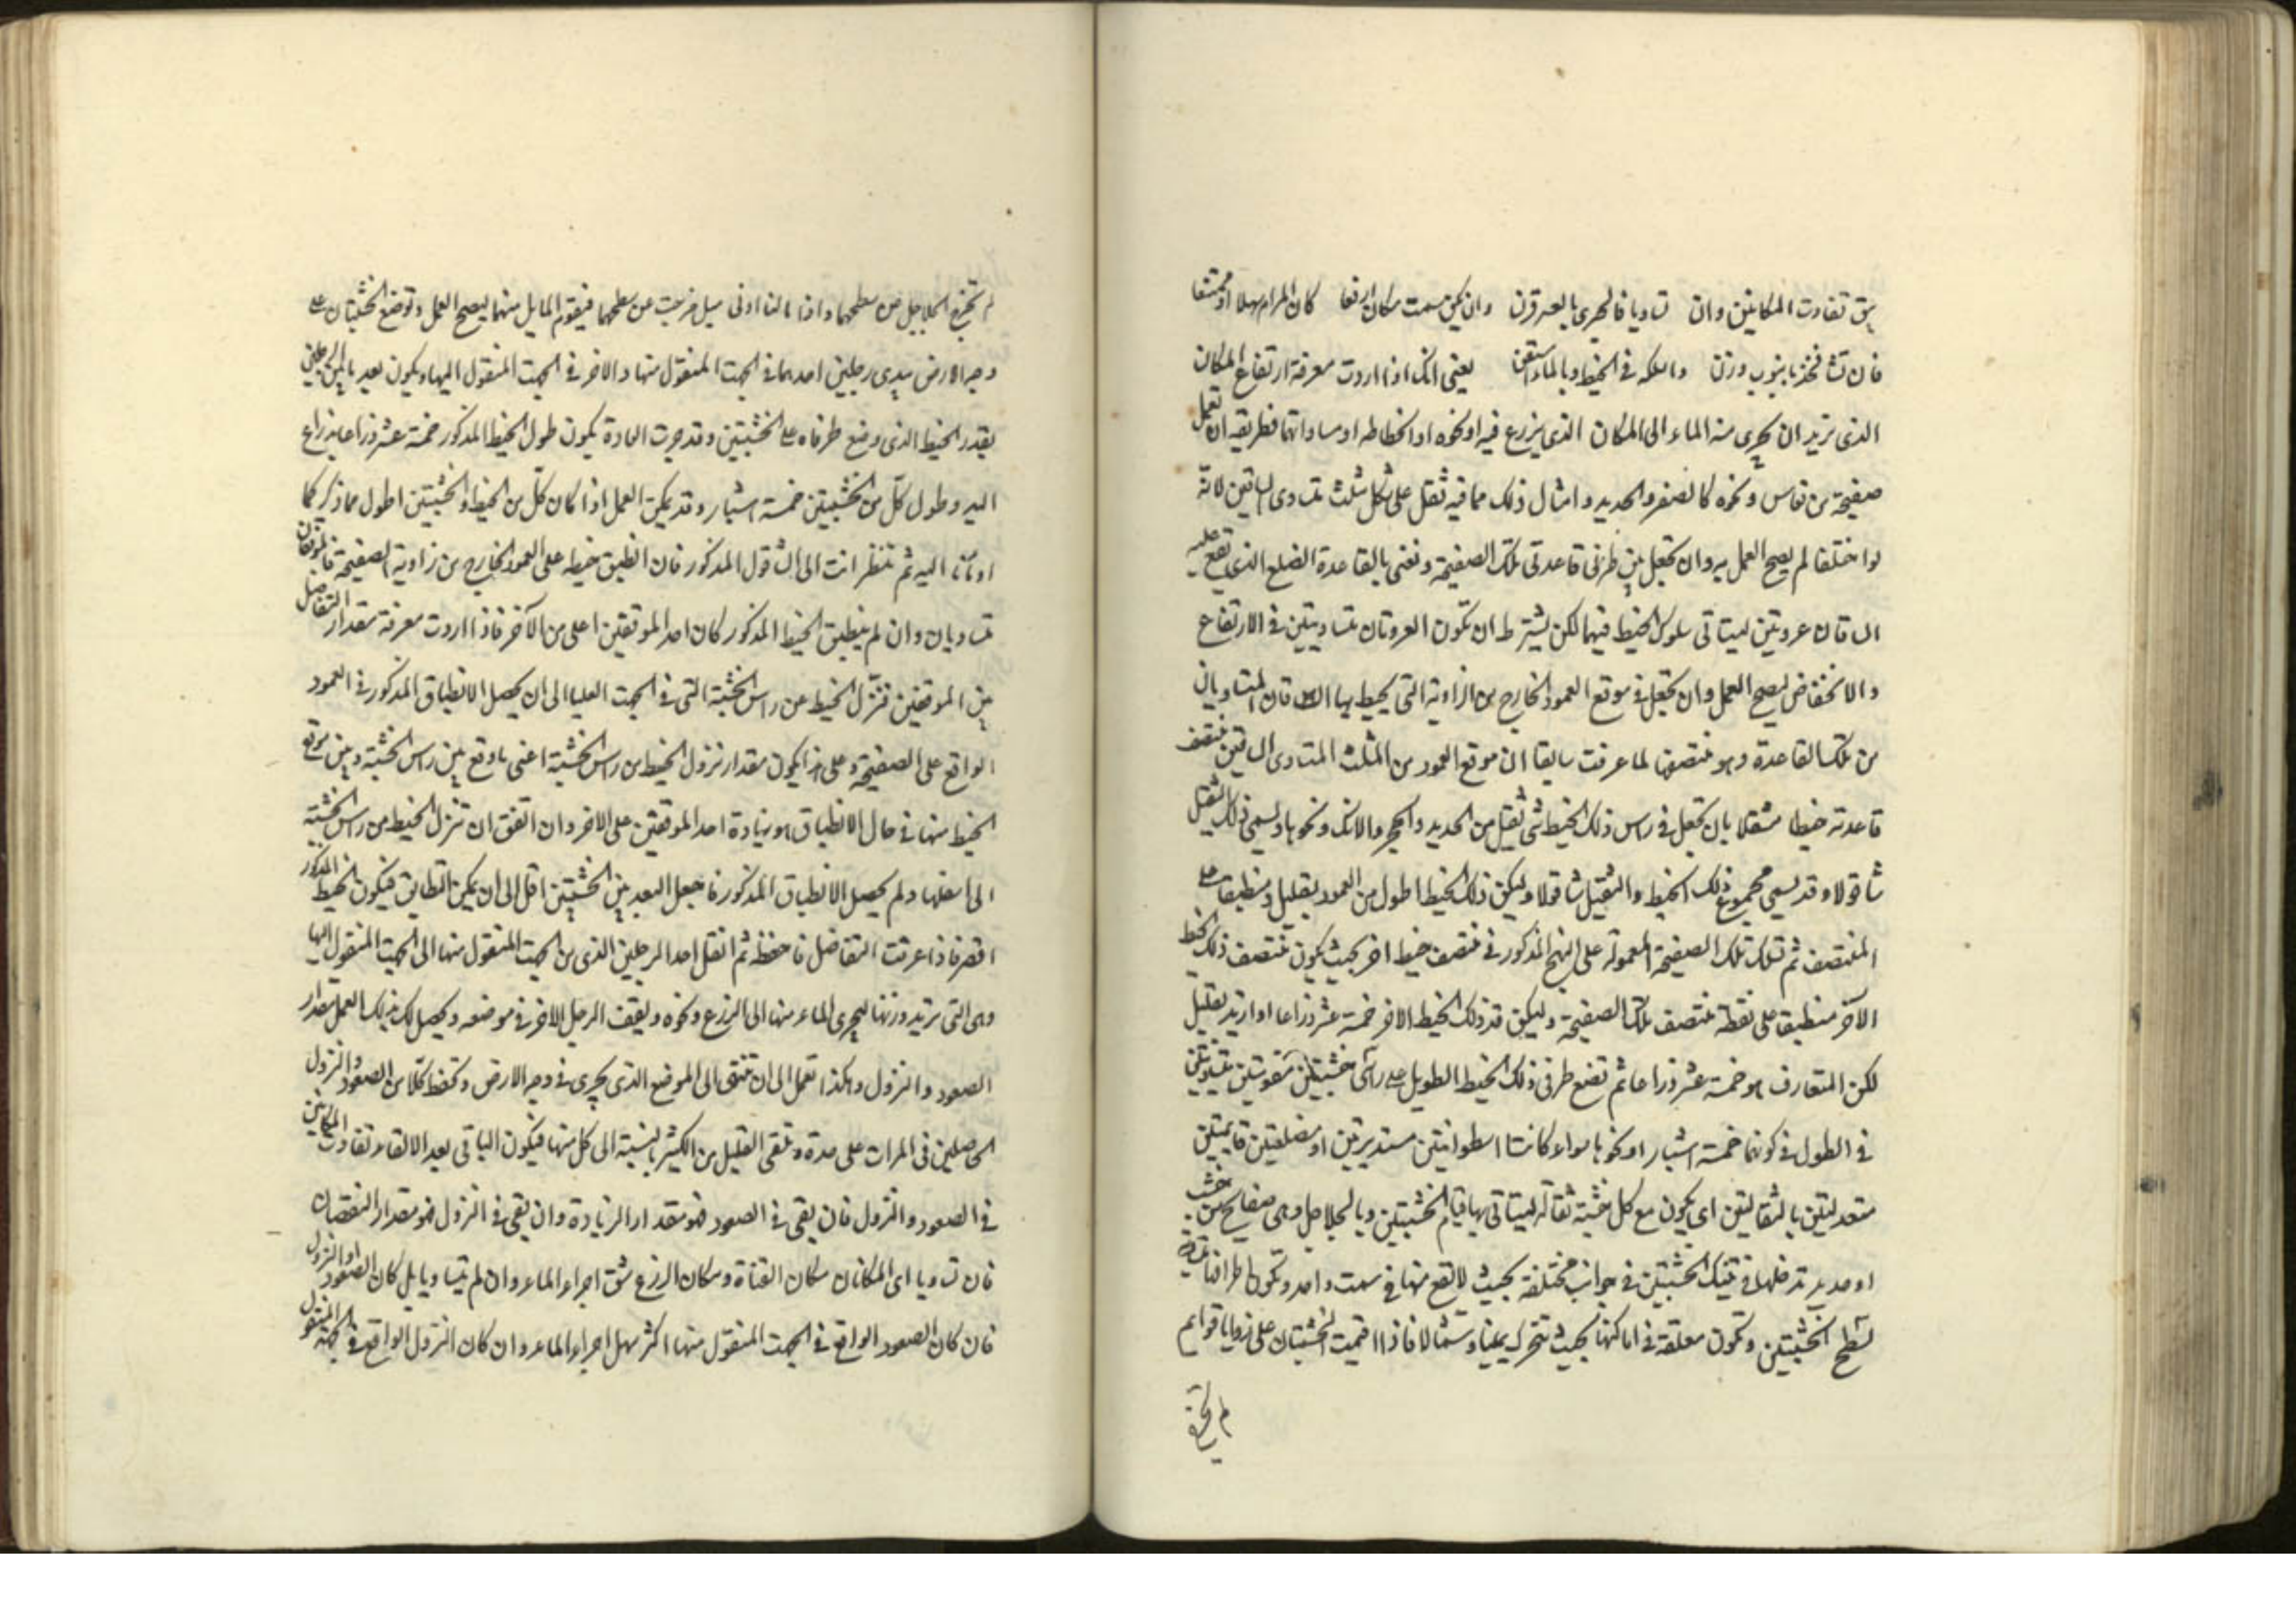 يبق تفاوت المكانين وان تساويا فالجرى بالعسر قرن وان يكن سمت مكان ارفعا كان المرام سهلا او ممتنعا
فان تشا فخذ بانبوب وزن واسلكه في الخيط وبالماء استعن يعنى انك اذا اردت معرفة ارتفاع المكان
الذى تريد ان يجرى منه الماء الى المكان الذى يزرع فيه او نحوه او انحطاطه او مساواتهما فطريقه ان تعمل
صفيحة من نحاس ونحوه كالصفر والحديد وامثال ذلك مما فيه ثقل على شكل مثلث متساوى الساقين لانه
لو اختلفا لم يصح العمل به وان تجعل بين طرفى قاعدتى تلك الصفيحة ونعنى بالقاعدة الضلع الذى تقع عليه
الساقان عروتين ليتاتى سلوك الخيط فيهما لكن يشترط ان تكون العروتان متساويتين في الارتفاع
والانخفاض ليصح العمل وان تجعل في موقع العمود الخارج من الزاوية التى يحيط بها الساقان المتساويان
من تلك القاعدة وهو منتصفها لما عرفت سابقا ان موقع العمود من المثلث المتساوى الساقين منتصف
قاعدته خيطا مثقلا بان تجعل في راس ذلك الخيط شئ ثقيل من الحديد والحجر والانك ونحوها ويسمى ذلك الثقيل
شاقولا وقد يسمى مجموع ذلك الخيط والثقيل شاقولا وليكن ذلك الخيط اطول من العمود بقليل ومنطبقا على
المنتصف ثم تسلك تلك الصفيحة المعمولة على النهج المذكور في منتصف خيط اخر بحيث يكون منتصف ذلك الخيط
الآخر منطبقا على نقطة منتصف تلك الصفيحة وليكن قدر ذلك الخيط الاخر خمسة عشر ذراعا او ازيد بقليل
لكن المتعارف هو خمسة عشر ذراعا ثم تضع طرفى ذلك الخيط الطويل على راسى خشبتين مقومتين متساويتين
في الطول في كونهما خمسة اشبار او نحوها سواء كانتا اسطوانتين مستديرتين او مضلعتين قايمتين
معتدلتين بالثقالتين اى يكون مع كل خشبة ثقالة ليتاتى بها قيام الخشبتين وبالجلاجل وهى صفايح من خشب
او حديد تدخلها في تينك الخشبتين في جوانب مختلفة بحيث لا تقع منها في سمت واحد وتكون اطرافها
لسطح الخشبتين وتكون معلقة في اماكنها بحيث تتحرك يمينا وشمالا فاذا اقيمت الخشبتان على زوايا قوايم
لم تخرج
لم تخرج الجلاجل من سطحهما واذا مالتا ادنى ميل خرجت عن سطحهما فيقوم المايل منهما ليصح العمل وتوضع الخشبتان على
وجه الارض بيدى رجلين احدهما في الجهة المنقول منها والاخر في الجهة المنقول اليها ويكون بعد ما بين الرجلين
بقدر الخيط الذى وضع طرفاه على الخشبتين وقد جرت العادة بكون طول الخيط المذكور خمسة عشر ذراعا بذراع
اليد وطول كل من الخشبتين خمسة اشبار وقد يمكن العمل اذا كان كل من الخيط والخشبتين اطول مما ذكر كما
اومأنا اليه ثم تنظر انت الى الشاقول المذكور فان انطبق خيطه على العمود الخارج من زاوية الصفيحة فالموقفان
متساويان وان لم ينطبق الخيط المذكور كان احد الموقفين اعلى من الآخر فاذا اردت معرفة مقدار التفاضل
بين الموقفين فتنزل الخيط عن راس الخشبة التى في الجهة العليا الى ان يحصل الانطباق المذكور في العمود
الواقع على الصفيحة وعلى هذا يكون مقدار نزول الخيط من راس الخشبة اعنى ما وقع بين راس الخشبة وبين موقع
الخيط منها في حال الانطباق هو زيادة احد الموقفين على الاخر وان اتفق ان تنزل الخيط من راس الخشبة
الى اسفلها ولم يحصل الانطباق المذكور فاجعل البعد بين الخشبتين اقل الى ان يمكن التطابق فيكون الخيط المذكور
اقصر فاذا عرفت التفاضل فاحفظه ثم انقل احد الرجلين الذى من الجهة المنقول منها الى الجهة المنقول اليها
وهى التى تريد وزنها ليجرى الماء منها الى الزرع ونحوه ويقف الرجل الاخر في موضعه ويحصل لك بذلك العمل مقدار
الصعود والنزول وهكذا تعمل الى ان تنتهى الى الموضع الذى يجرى في وجه الارض وتحفظ كلا من الصعود والنزول
الحاصلين في المرات على حدة وتلقى القليل من الكثير بالنسبة الى كل منهما فيكون الباقى بعد الالقاء تفاوت المكانين
في الصعود والنزول فان بقى في الصعود فهو مقدار الزيادة وان بقى في النزول فهو مقدار النقصان
فان تساويا اى المكانان مكان القناة ومكان الزرع شق اجراء الماء وان لم يتساويا بل كان الصعود او النزول
فان كان الصعود الواقع في الجهة المنقول منها اكثر سهل اجراء الماء وان كان النزول الواقع في الجهة المنقول